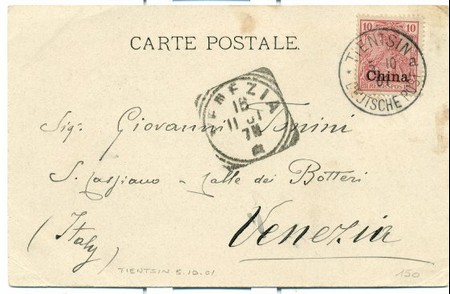 10 10
REICHSPOST
China
TIENTSIN
a
5 10
01
DEUTSCHE POST
CARTE POSTALE.
VENEZIA
18
11 01
7
Sig. Giovanni
S. Cassiano - Calle dei Botteri
(Italy)
Venezia
TIENTSIN 5.10.01
150